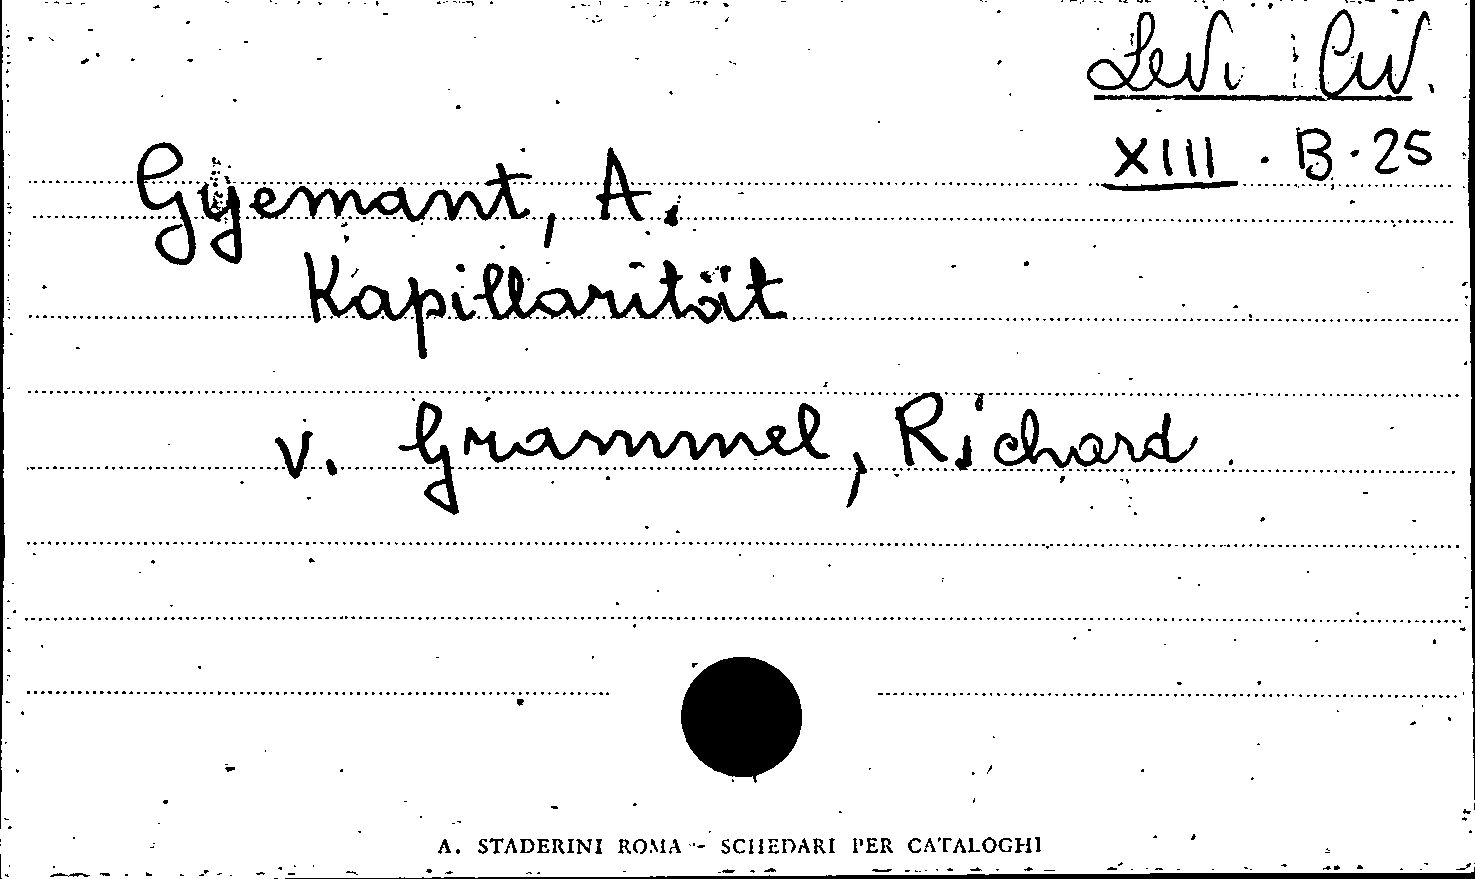 Levi Civ.
XIII · B · 25
Gyemant, A.
Kapillarität
v. Grammel, Richard
A. STADERINI ROMA - SCHEDARI PER CATALOGHI